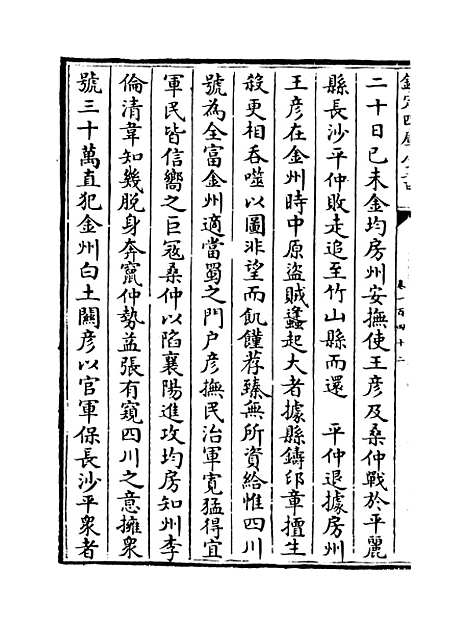 欽定四庫全書
卷一百四十二
二十日已未金均房州安撫使王彦及桑仲戰於平麗
縣長沙平仲敗走追至竹山縣而還　平仲退據房州
王彦在金州時中原盜賊蠭起大者據縣鑄印章擅生
殺更相吞噬以圖非望而飢饉荐臻無所資給惟四川
號為全富金州適當蜀之門户彦撫民治軍寛猛得宜
軍民皆信嚮之巨冦桑仲以陷襄陽進攻均房知州李
倫清韋知幾脱身奔竄仲勢益張有窺四川之意擁衆
號三十萬直犯金州白土關彦以官軍保長沙平衆者